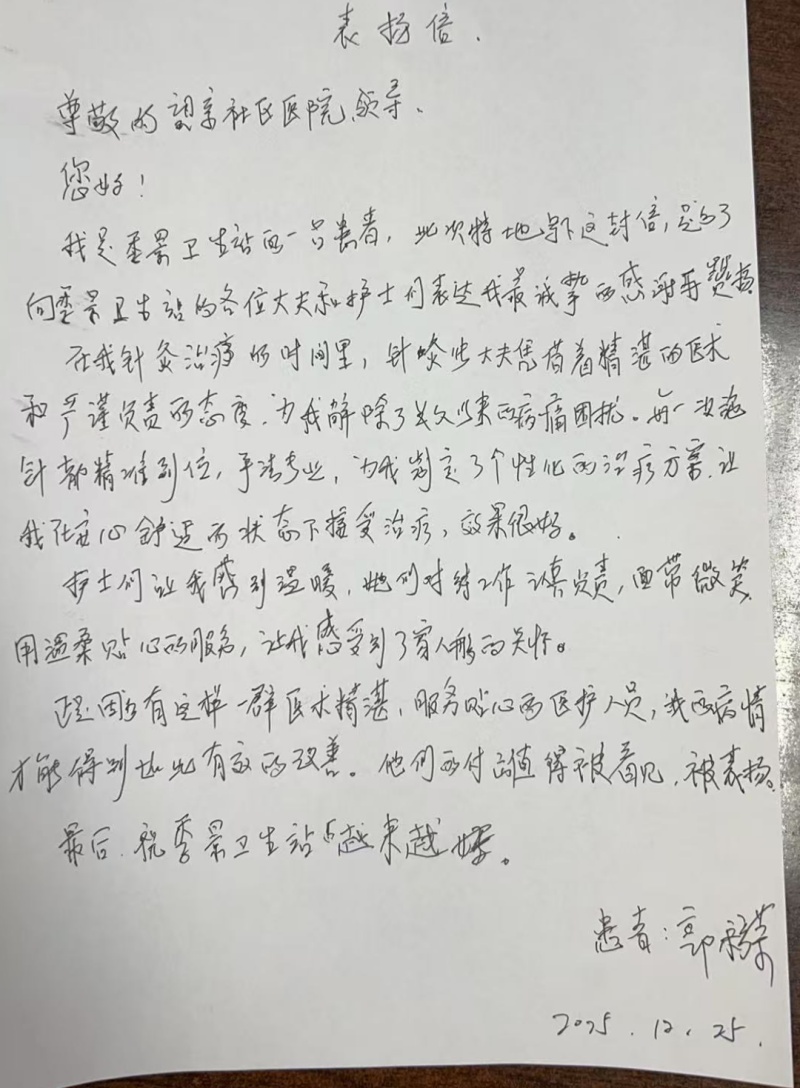 表扬信.
尊敬的望京社区医院领导.
您好!
我是季景卫生站的一名患者,此次特地写下这封信,是为了
向季景卫生站的各位大夫和护士们表达我最诚挚的感谢与赞扬
在我针灸治疗的时间里,针灸步大夫凭借着精湛的医术
和严谨负责的态度.为我解除了长久以来的病痛困扰。每一次施
针都精准到位,手法专业,为我制定了个性化的治疗方案.让
我在安心舒适的状态下接受治疗,效果很好。
护士们让我感到温暖,她们对待工作认真负责,面带微笑.
用温柔贴心的服务,让我感受到了家人般的关怀。
正是因为有这样一群医术精湛,服务贴心的医护人员,我的病情
才能得到如此有效的改善。他们的付出值得被看见,被表扬。
最后.祝季景卫生站越来越好。
患者:郭荣
2025.12.25.